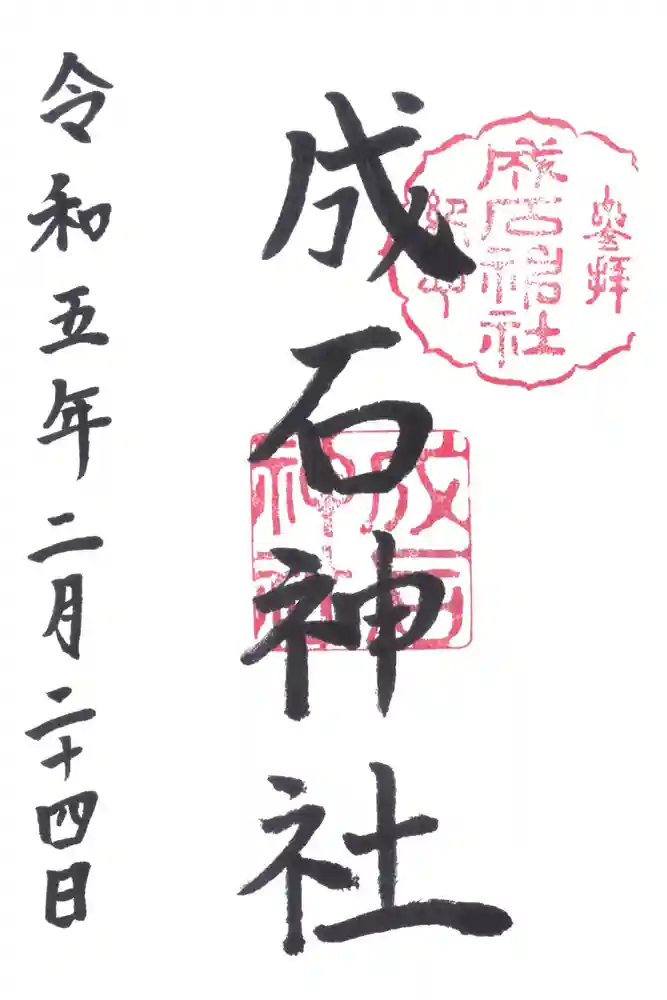 参拝
成石神社
紀念
成石神社
成石神社
令和五年二月二十四日